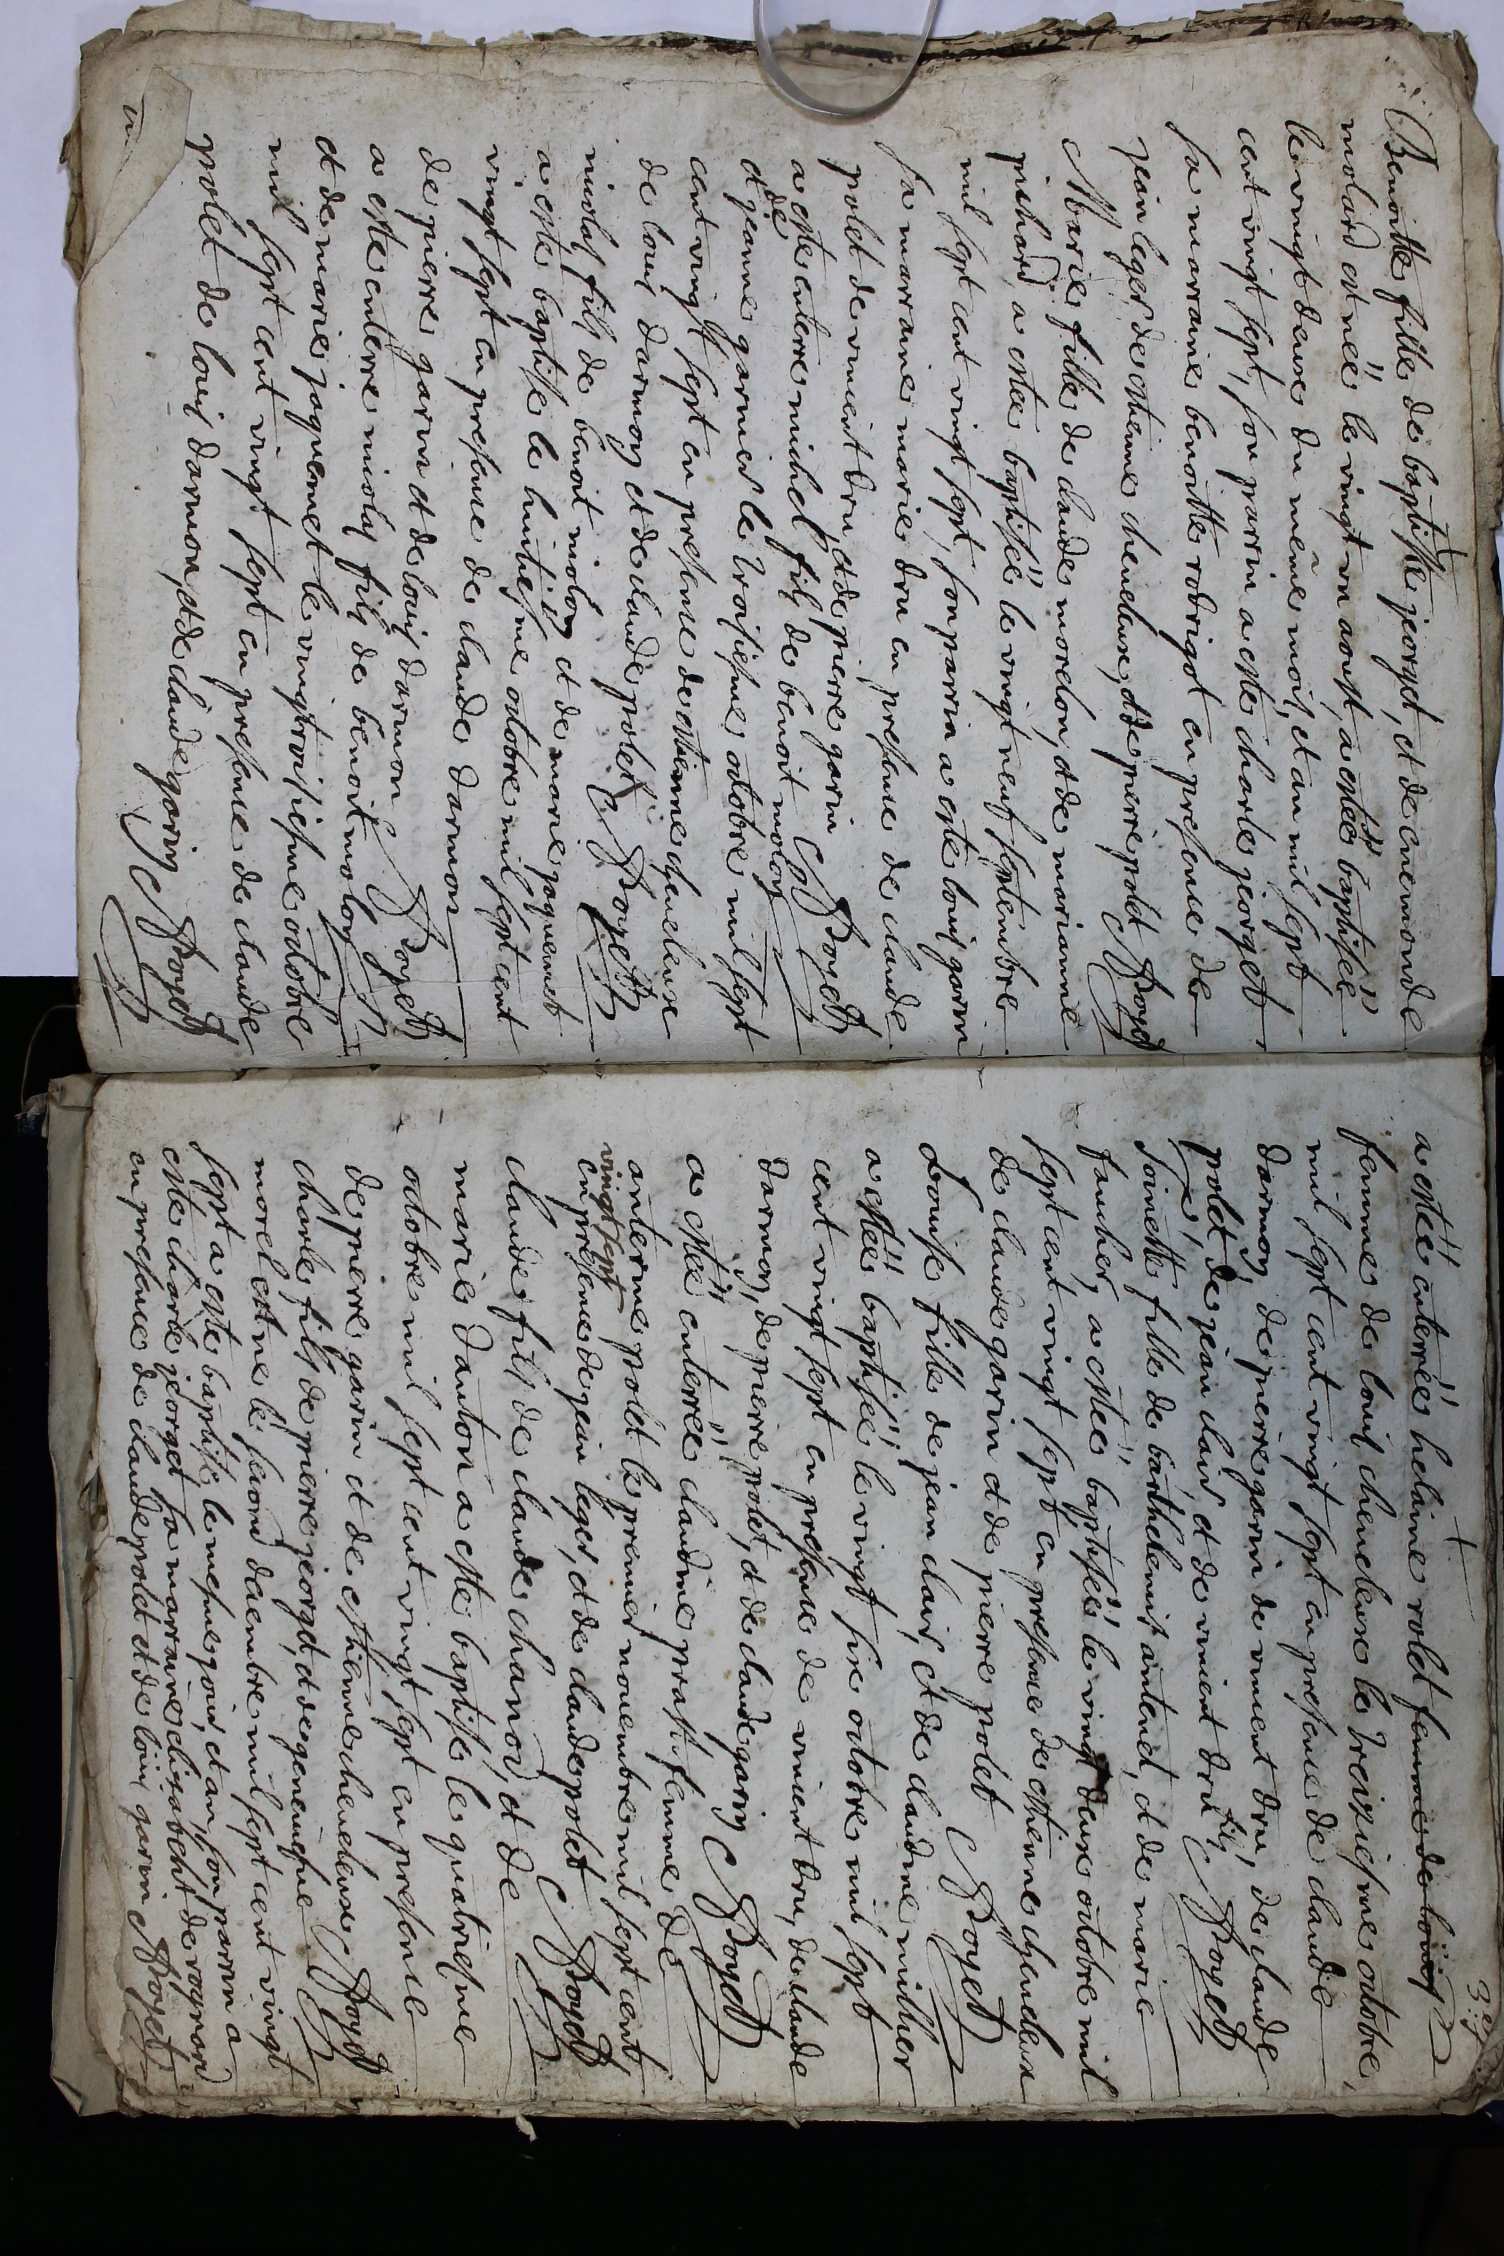 Benoitte fille de baptiste jeorget, et de enemonde
molard est née le vingt un aoust, a estée baptisée
le vingt deux du même mois, et an mil sept
cent vingt sept, son parrin a este charle jeorget
sa marraine benoitte robrigot en presence de
jean leger, de estienne cheneleux, et de pierre polet Royet
Marie fille de claude morelon, et de marianne
pichard, a estée baptisée le vingt neuf septembre
mil sept cent vingt sept, son parrin a este louis garin
sa marraine marie dru en presence de claude
polet de vincent dru, et de pierre garin Royet
a este enterre michel fils de benoit molon
et de jeanne garnier le troisiesme octobre mil sept
cent vingt sept en presence de estienne cheneleux
de louis darmon et de claude polet Royet
nicolas fils de benoit molon et de marie jaquemet
a este baptise le huitiesme octobre mil sept cent
vingt sept en presence de claude darmon
de pierre garin et de louis darmon Royet
a este enterre nicolas fils de benoit molon
et de marie jaquemet le vingtroisiesme octobre
mil sept cent vingt sept en presence de claude
polet de louis darmon, et de claude garin Royet
a estée enterrée helaine rolet femme de louis
femme de louis cheneleux le treiziesme octobre,
mil sept cent vingt sept en presence de claude
darmon, de pierre garin de vincent dru, de claude
polet de jean clair, et de vincent dru Royet
Toinette fille de barthelemis antenet, et de marie
faucher, a estée baptisée le vingt deux octobre mil
sept cent vingt sept en presence de estienne cheneleux
de claude garin et de pierre polet Royet
Louise fille de jean clair, et de claudine micher
a estée baptisée le vingt six octobre mil sept
cent vingt sept en presence de vincent dru, de claude
darmon, de pierre polet, et de claude garin Royet
a estée enterrée claudine pras femme de
anterme polet le premier novembre mil sept cent
vingt sept
en presence de jean leger, et de claude polet Royet
claude fils de claude chanor, et de
marie danton a este baptise le quatriesme
octobre mil sept cent vingt sept en presence
de pierre garin et de estienne cheneleux Royet
charle fils de pierre jeorget, et de genevieſve
morel est ne le second decembre mil sept cent vingt
sept a este baptisé le mesme jour, et an, son parrin a
este charle jeorget sa marraine elizabeht de ragnard
en presence de claude polet et de louis garin Royet